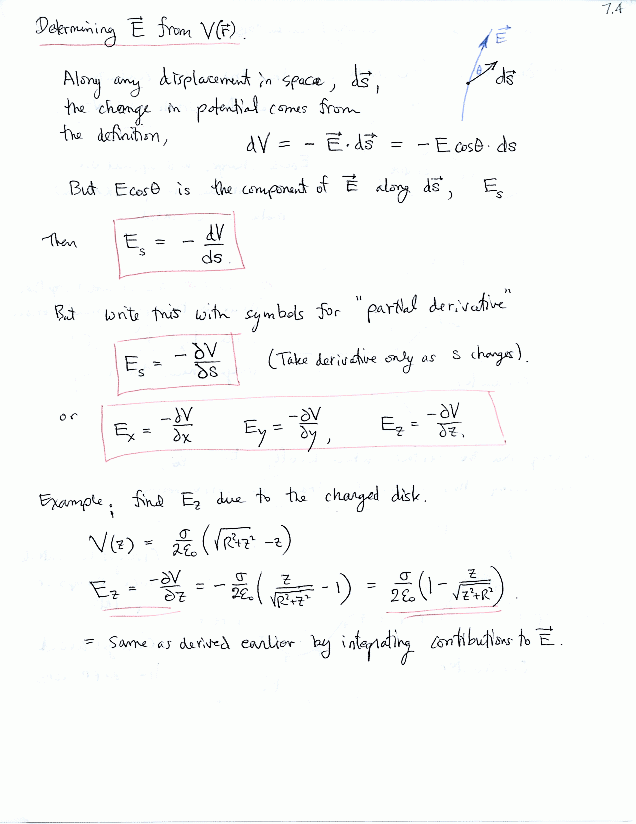 7.4
Determining E⃗ from V(r⃗).
E⃗
θ
ds⃗
Along any displacement in space, ds⃗,
the change in potential comes from
the definition, dV = - E⃗·ds⃗ = - E cosθ · ds
But E cosθ is the component of E⃗ along ds⃗, E_s
Then E_s = - dV/ds.
But write this with symbols for "partial derivative"
E_s = -∂V/∂s (Take derivative only as s changes).
or E_x = -∂V/∂x E_y = -∂V/∂y, E_z = -∂V/∂z.
Example; find E_z due to the charged disk.
V(z) = σ/2ε₀ (√(R²+z²) - z)
E_z = -∂V/∂z = - σ/2ε₀ (z/√(R²+z²) - 1) = σ/2ε₀ (1 - z/√(z²+R²)).
= Same as derived earlier by integrating contributions to E⃗.